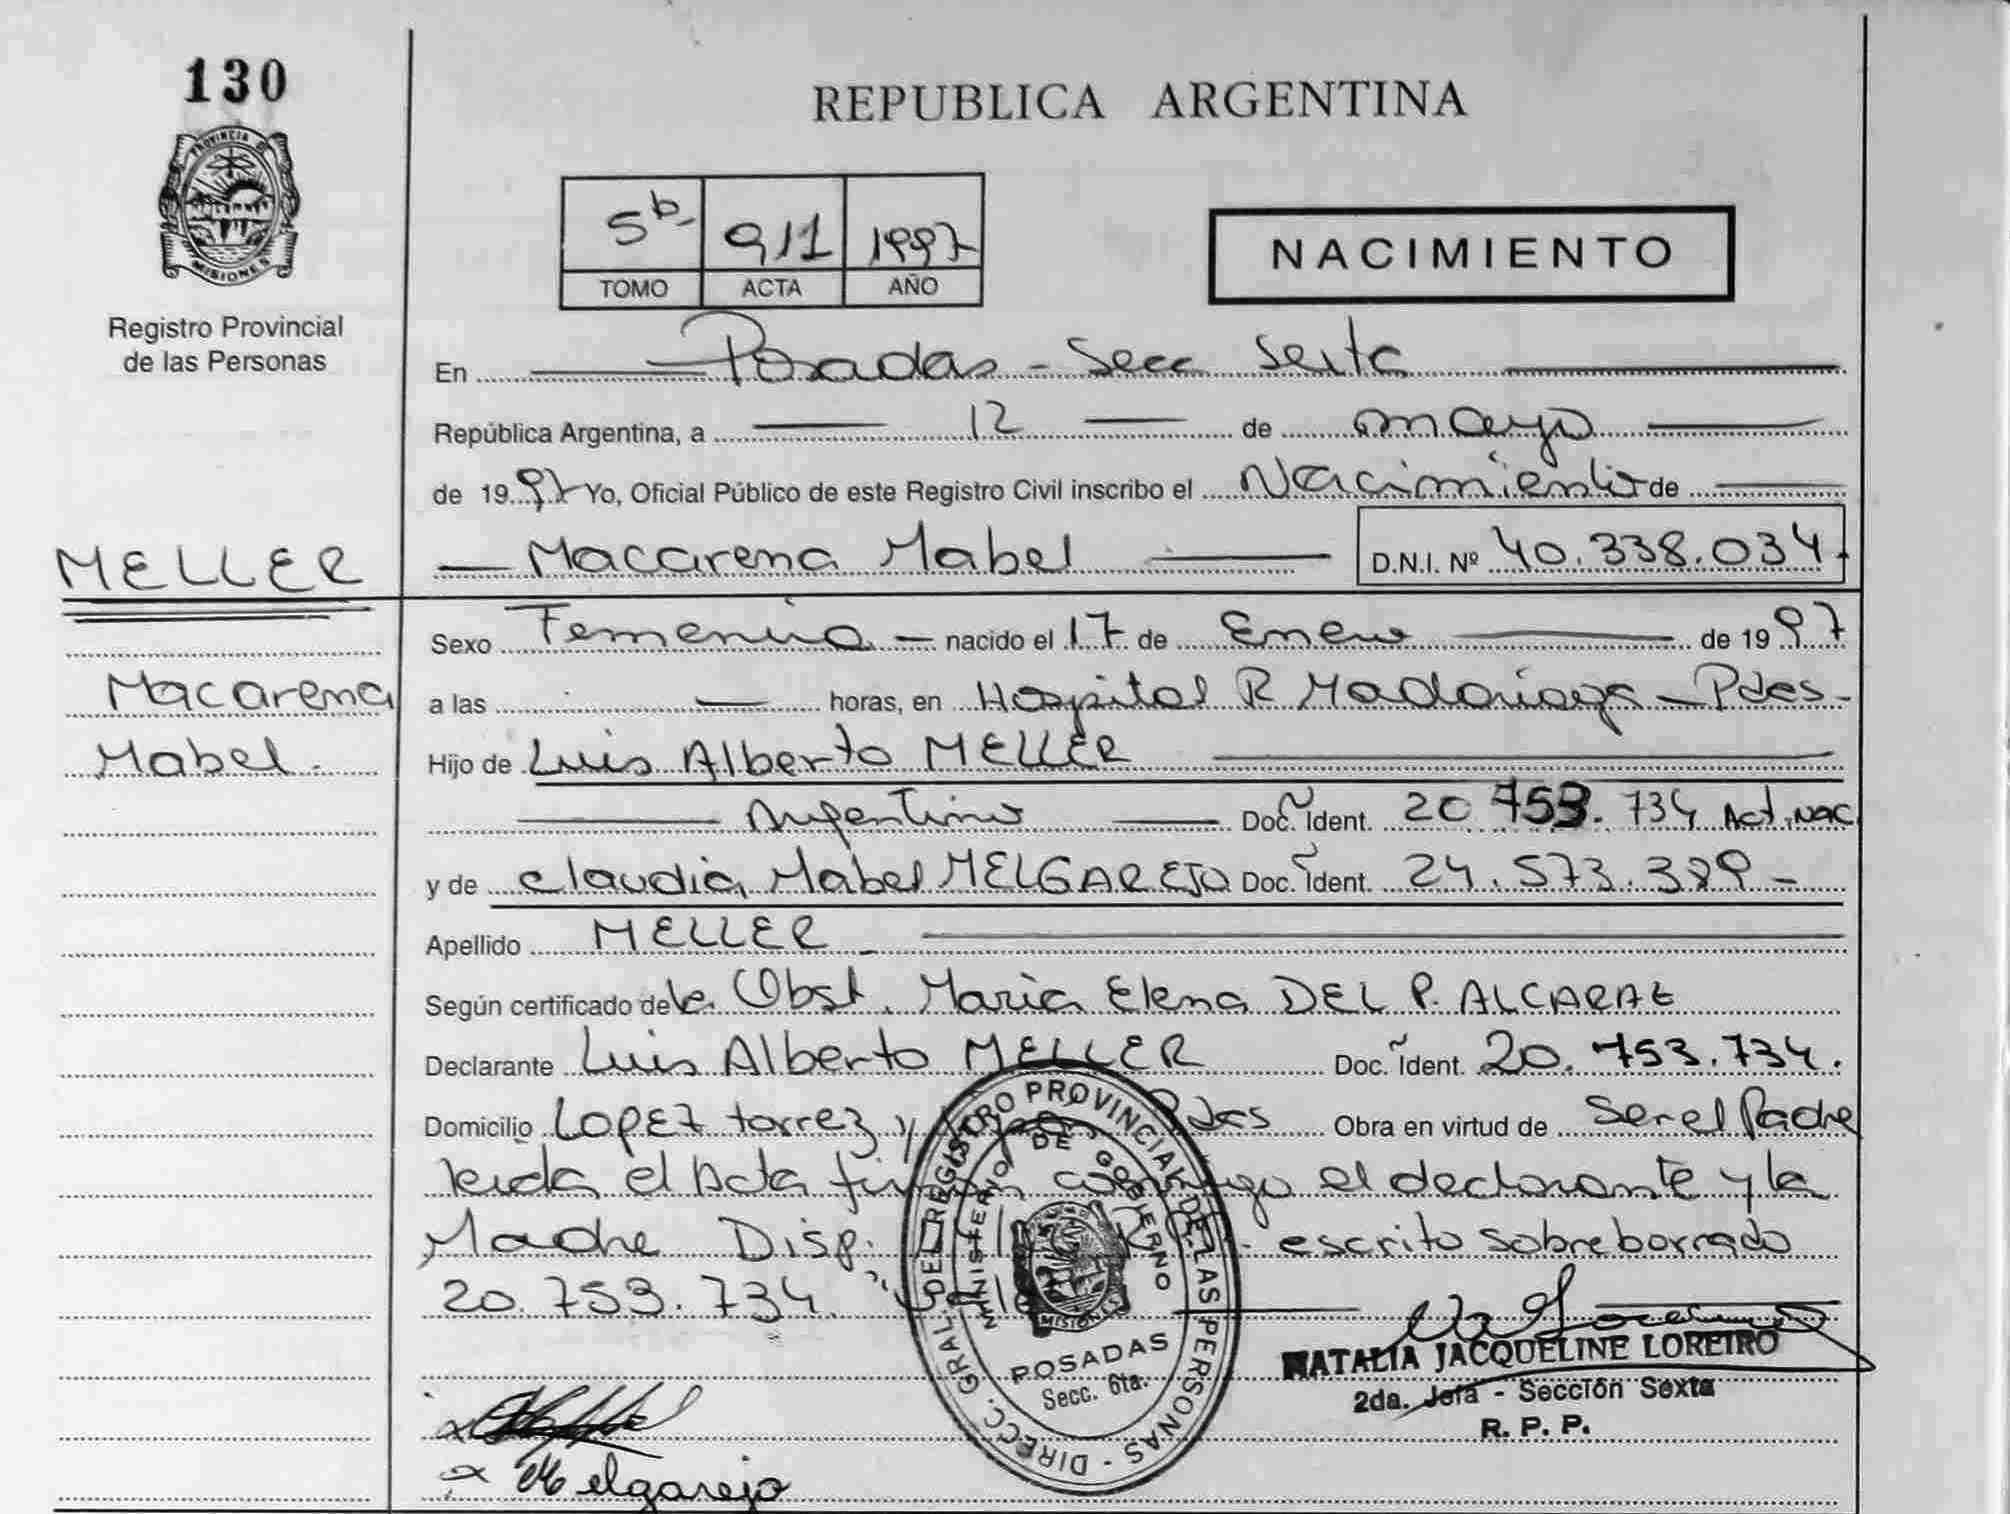 130
PROVINCIA DE
MISIONES
Registro Provincial
de las Personas
REPUBLICA ARGENTINA
5b 911 1997
TOMO ACTA AÑO
NACIMIENTO
En Posadas - Secc Sexta
República Argentina, a 12 de mayo
de 1997 Yo, Oficial Público de este Registro Civil inscribo el Nacimiento de
MELLER
Macarena Mabel D.N.I. Nº 40.338.034
Sexo Femenino nacido el 17 de Enero de 1997
Macarena
Mabel.
a las horas, en Hospital R Madariaga - Pdas -
Hijo de Luis Alberto MELLER
Argentino Doc. Ident. 20.753.734 Act. Nac.
y de Claudia Mabel MELGAREJO Doc. Ident. 24.573.389 -
Apellido MELLER
Según certificado de la Obst. Maria Elena DEL P. ALCARAZ
Declarante Luis Alberto MELLER Doc. Ident. 20.753.734.
Domicilio LOPEZ torrez y Pdas Obra en virtud de Ser el Padre
leida el Acta firman conmigo el declarante y la
Madre Disp. escrito sobreborrado
20.753.734.
DIRECC. GRAL. DEL REGISTRO PROVINCIAL DE LAS PERSONAS
MINISTERIO DE GOBIERNO
MISIONES
POSADAS
Secc. 6ta.
NATALIA JACQUELINE LOREIRO
2da. Jefa - Sección Sexta
R. P. P.
Melgarejo